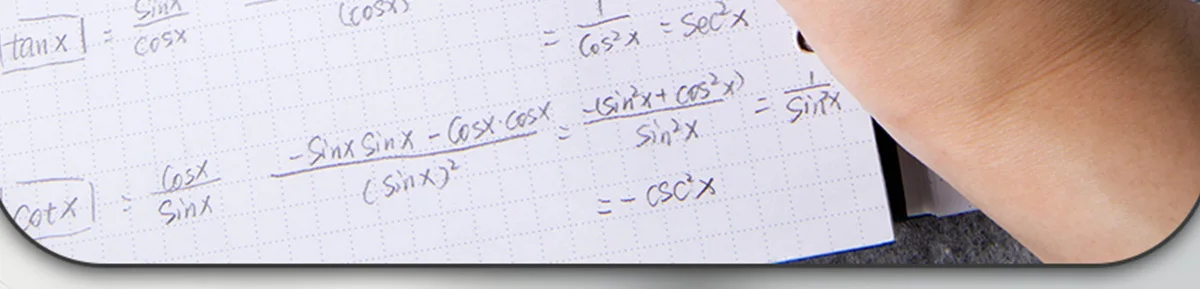 tanx = sinx/cosx (cosx) = 1/cos²x = sec²x
cotx = cosx/sinx -sinx sinx - cosx·cosx/(sinx)² = -(sin²x + cos²x)/sin²x = 1/sin²x
= - csc²x